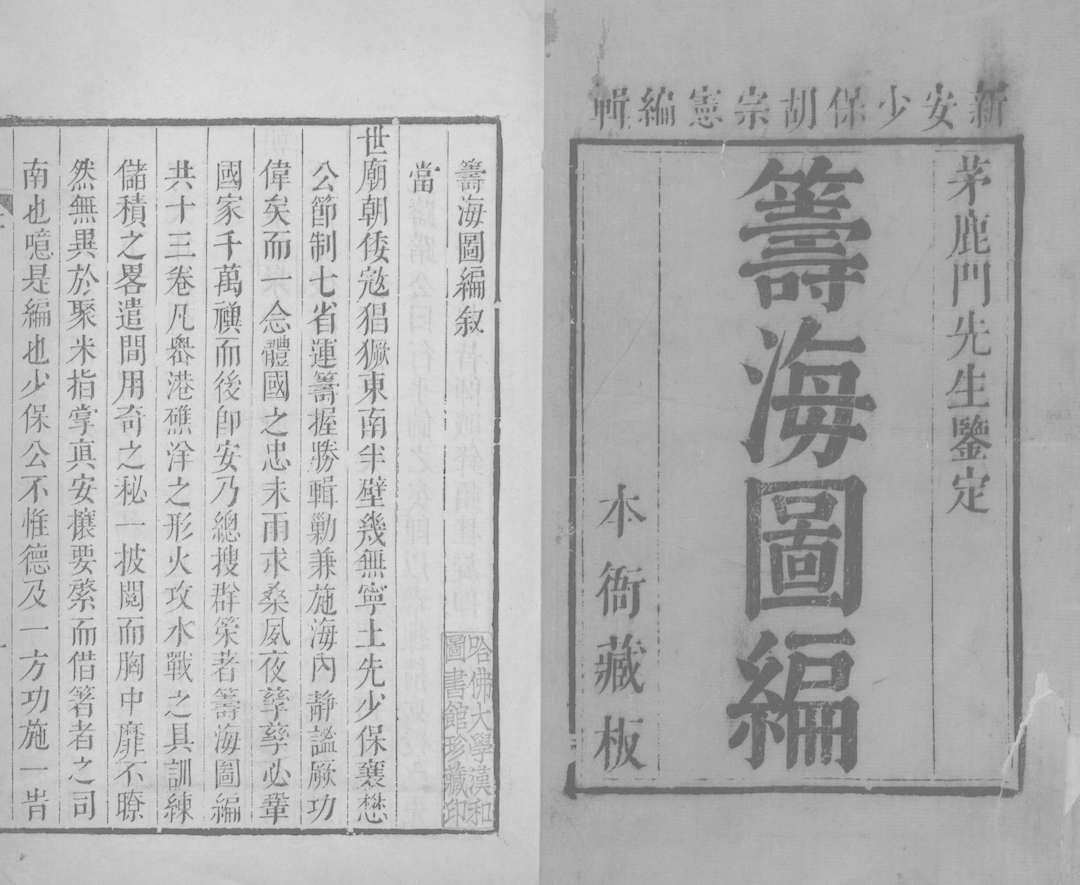 新安少保胡宗憲編輯
茅鹿門先生鑒定
籌海圖編
本衙藏板
籌海圖編叙
當
世廟朝倭寇猖獗東南半壁幾無寧土先少保襄懋
公節制七省運籌握勝輯勦兼施海內靜謐厥功
偉矣而一念體國之忠未雨求桑夙夜孳孳必鞏
國家千萬禩而後卽安乃總搜群筞著籌海圖編
共十三卷凡嶴港礁洋之形火攻水戰之具訓練
儲積之畧遣間用奇之秘一披閱而胸中靡不瞭
然無異於聚米指掌真安攘要蔡而借箸者之司
南也噫是編也少保公不惟德及一方功施一旹
哈佛大學漢和
圖書館珍藏印